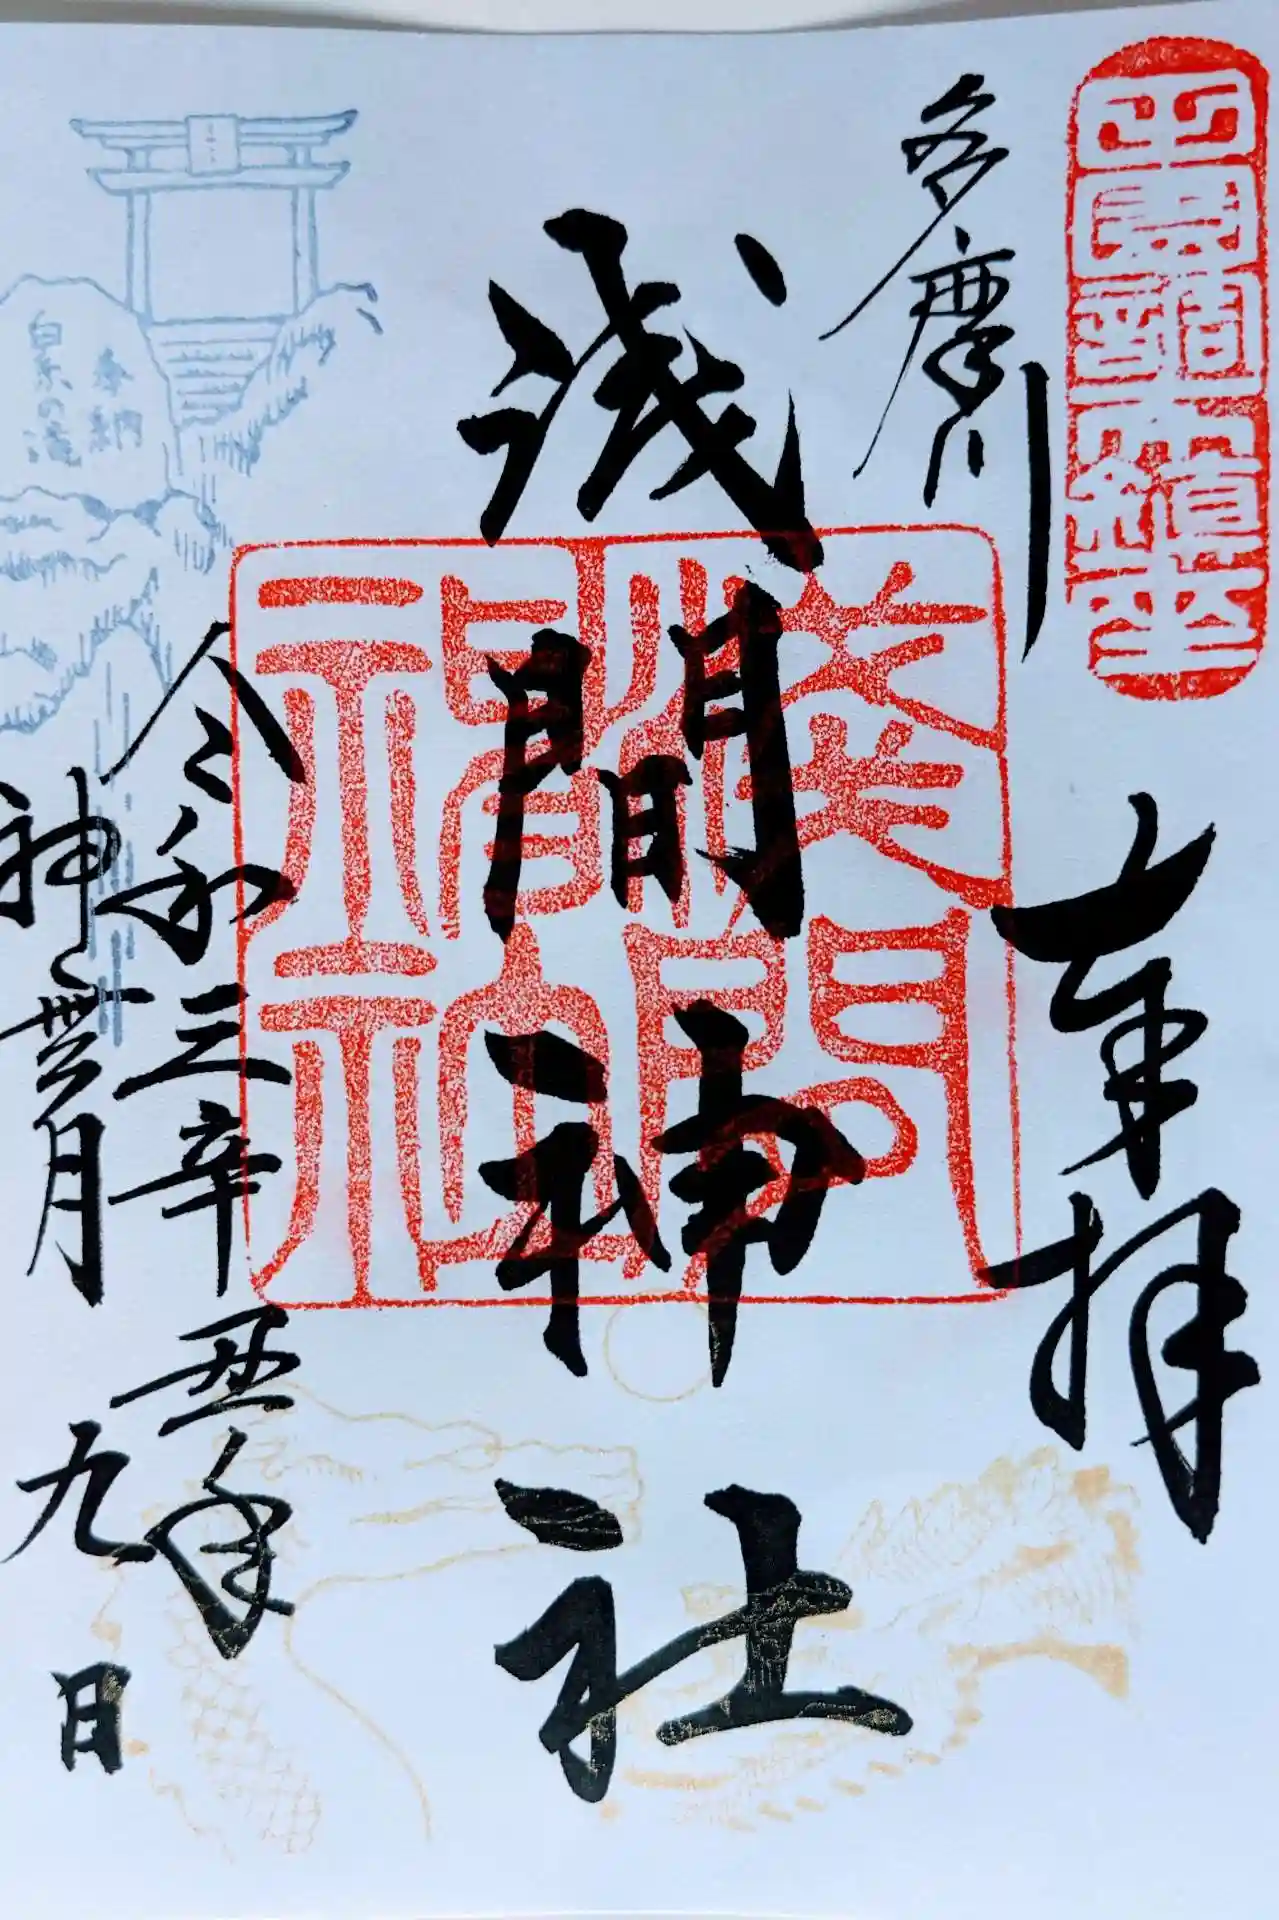 田園調布鎮座
奉拝
多摩川
浅間神社
淺間神社
令和三辛丑年
神無月九日
奉納
白糸の滝